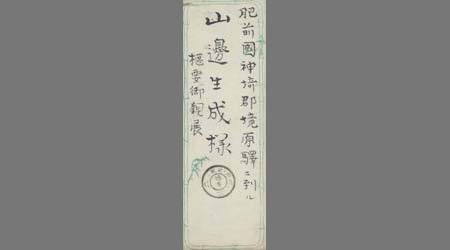 肥前國神埼郡境原驛ニ到ル
山邊生成様
極要御親展